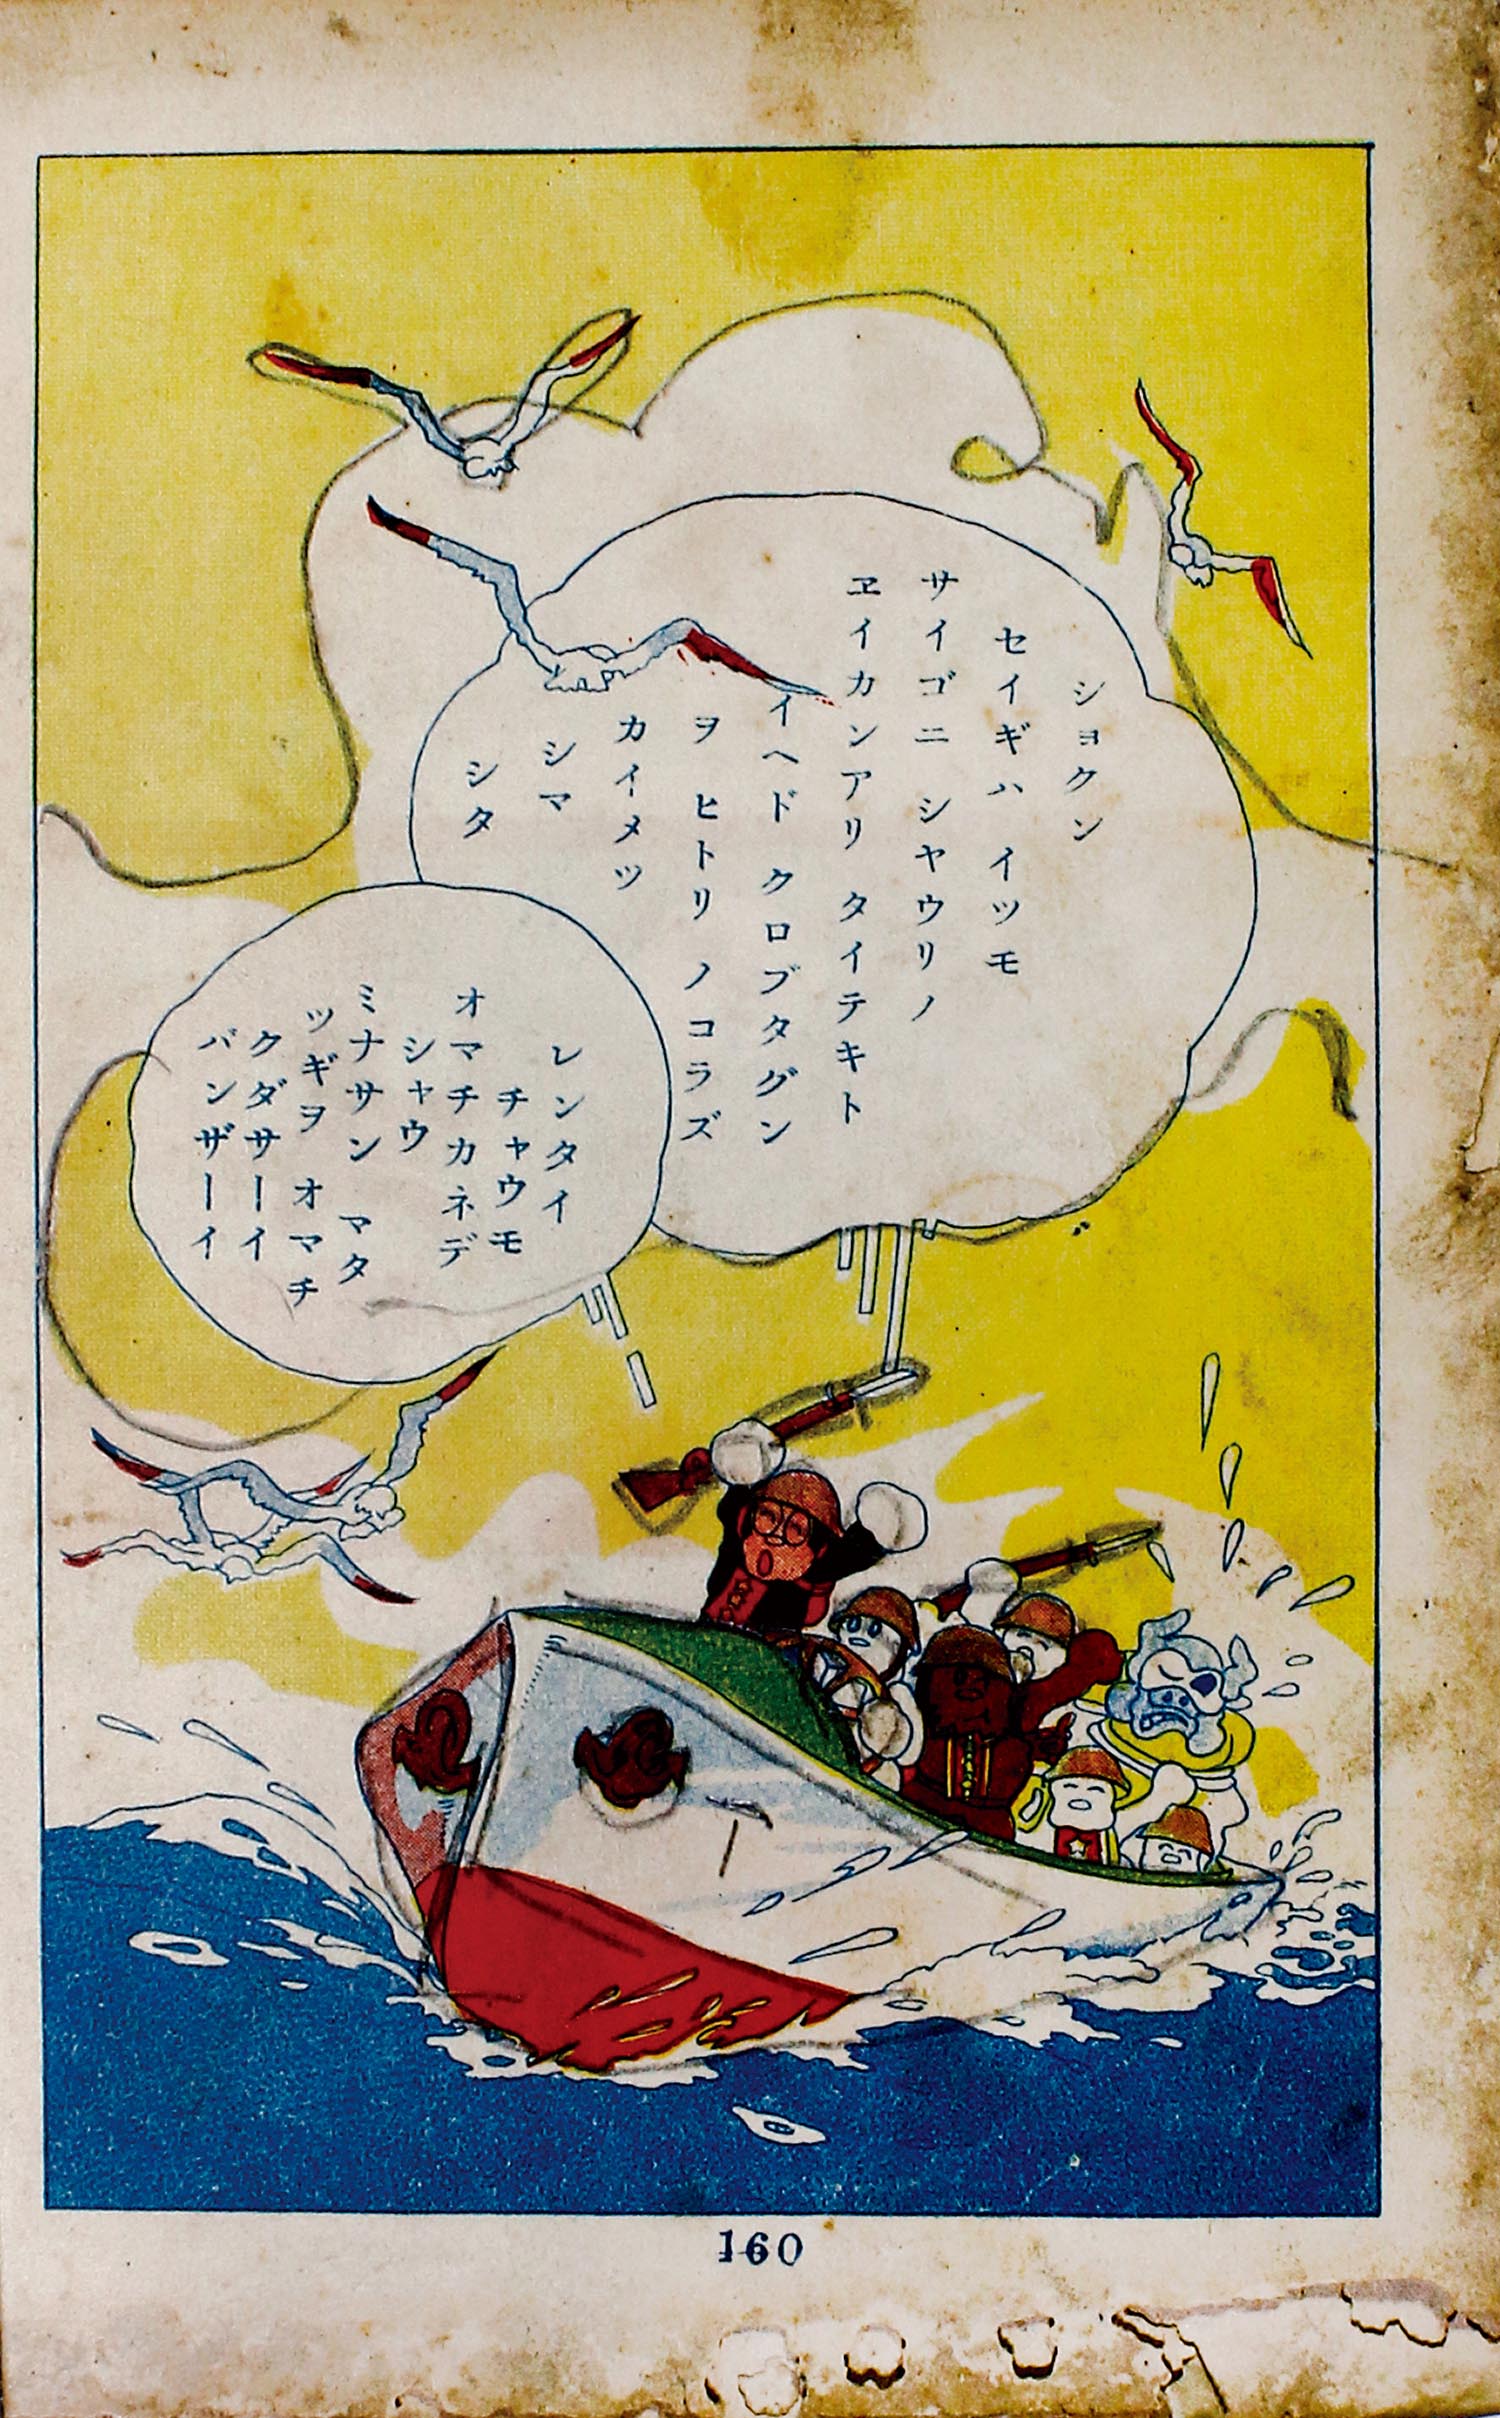 ショクン
セイギハ イツモ
サイゴニ シヤウリノ
ヱイカンアリ タイテキト
イヘド クロブタグン
ヲ ヒトリ ノコラズ
カイメツ
シマ
シタ
レンタイ
チャウモ
オマチカネデ
シャウ
ミナサン マタ
ツギヲ オマチ
クダサーイ
バンザーイ
160